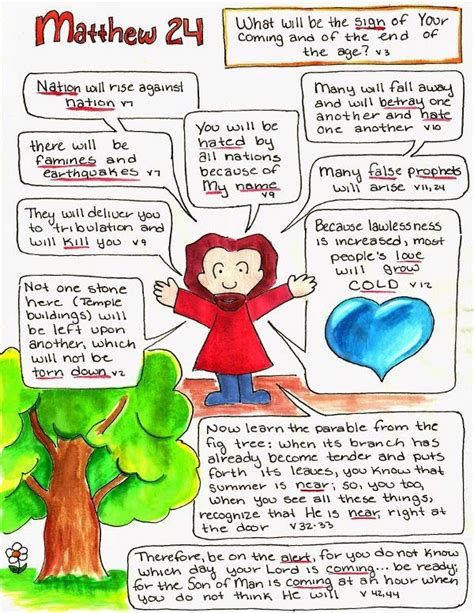 Matthew 24
What will be the sign of Your
Coming and of the end of
the age? v3
Nation will rise against
nation v7
there will be
famines and
earthquakes v7
They will deliver you
to tribulation and
will kill you v9
Not one stone
here (Temple
buildings) will
be left upon
another, which
will not be
torn down v2
You will be
hated by
all nations
because of
My name
v9
Many will fall away
and will betray one
another and hate
one another v10
Many false prophets
will arise v11,24
Because lawlessness
is increased, most
people's love
will grow
COLD v12
Now learn the parable from the
fig tree: when its branch has
already become tender and puts
forth its leaves, you know that
summer is near; so, you too,
when you see all these things,
recognize that He is near, right at
the door v 32-33
Therefore, be on the alert, for you do not know
which day your Lord is coming... be ready;
for the Son of Man is coming at an hour when
you do not think He will v 42,44